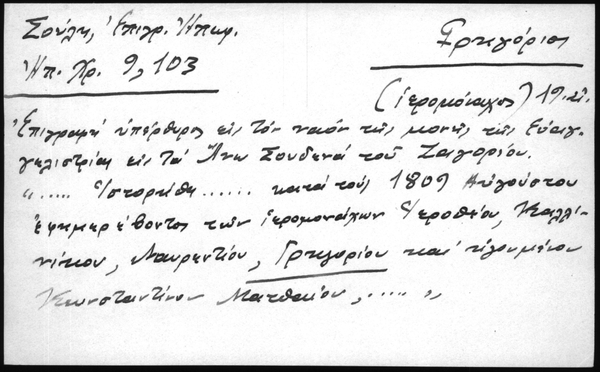 Σούλη, Ἐπιγρ. Ἠπειρ.
Γρηγόριος
Ἠπ. Χρ. 9, 103
(ἱερομόναχος) 19. αἰ.
Ἐπιγραφή ὑπέρθυρος εἰς τόν ναόν τῆς μονῆς τῆς Εὐαγ-
γελιστρίας εἰς τά Ἄνω Σουδενά τοῦ Ζαγορίου.
"..... Ἱστορήθη ...... κατά τούς 1809 Αὐγούστου
ἐφημερεύοντος τῶν ἱερομονάχων Ἱεροθέου, Καλλι-
νίκου, Λαυρεντίου, Γρηγορίου καί ἡγουμένου
Κωνσταντίνου Ματθαίου, ..... "